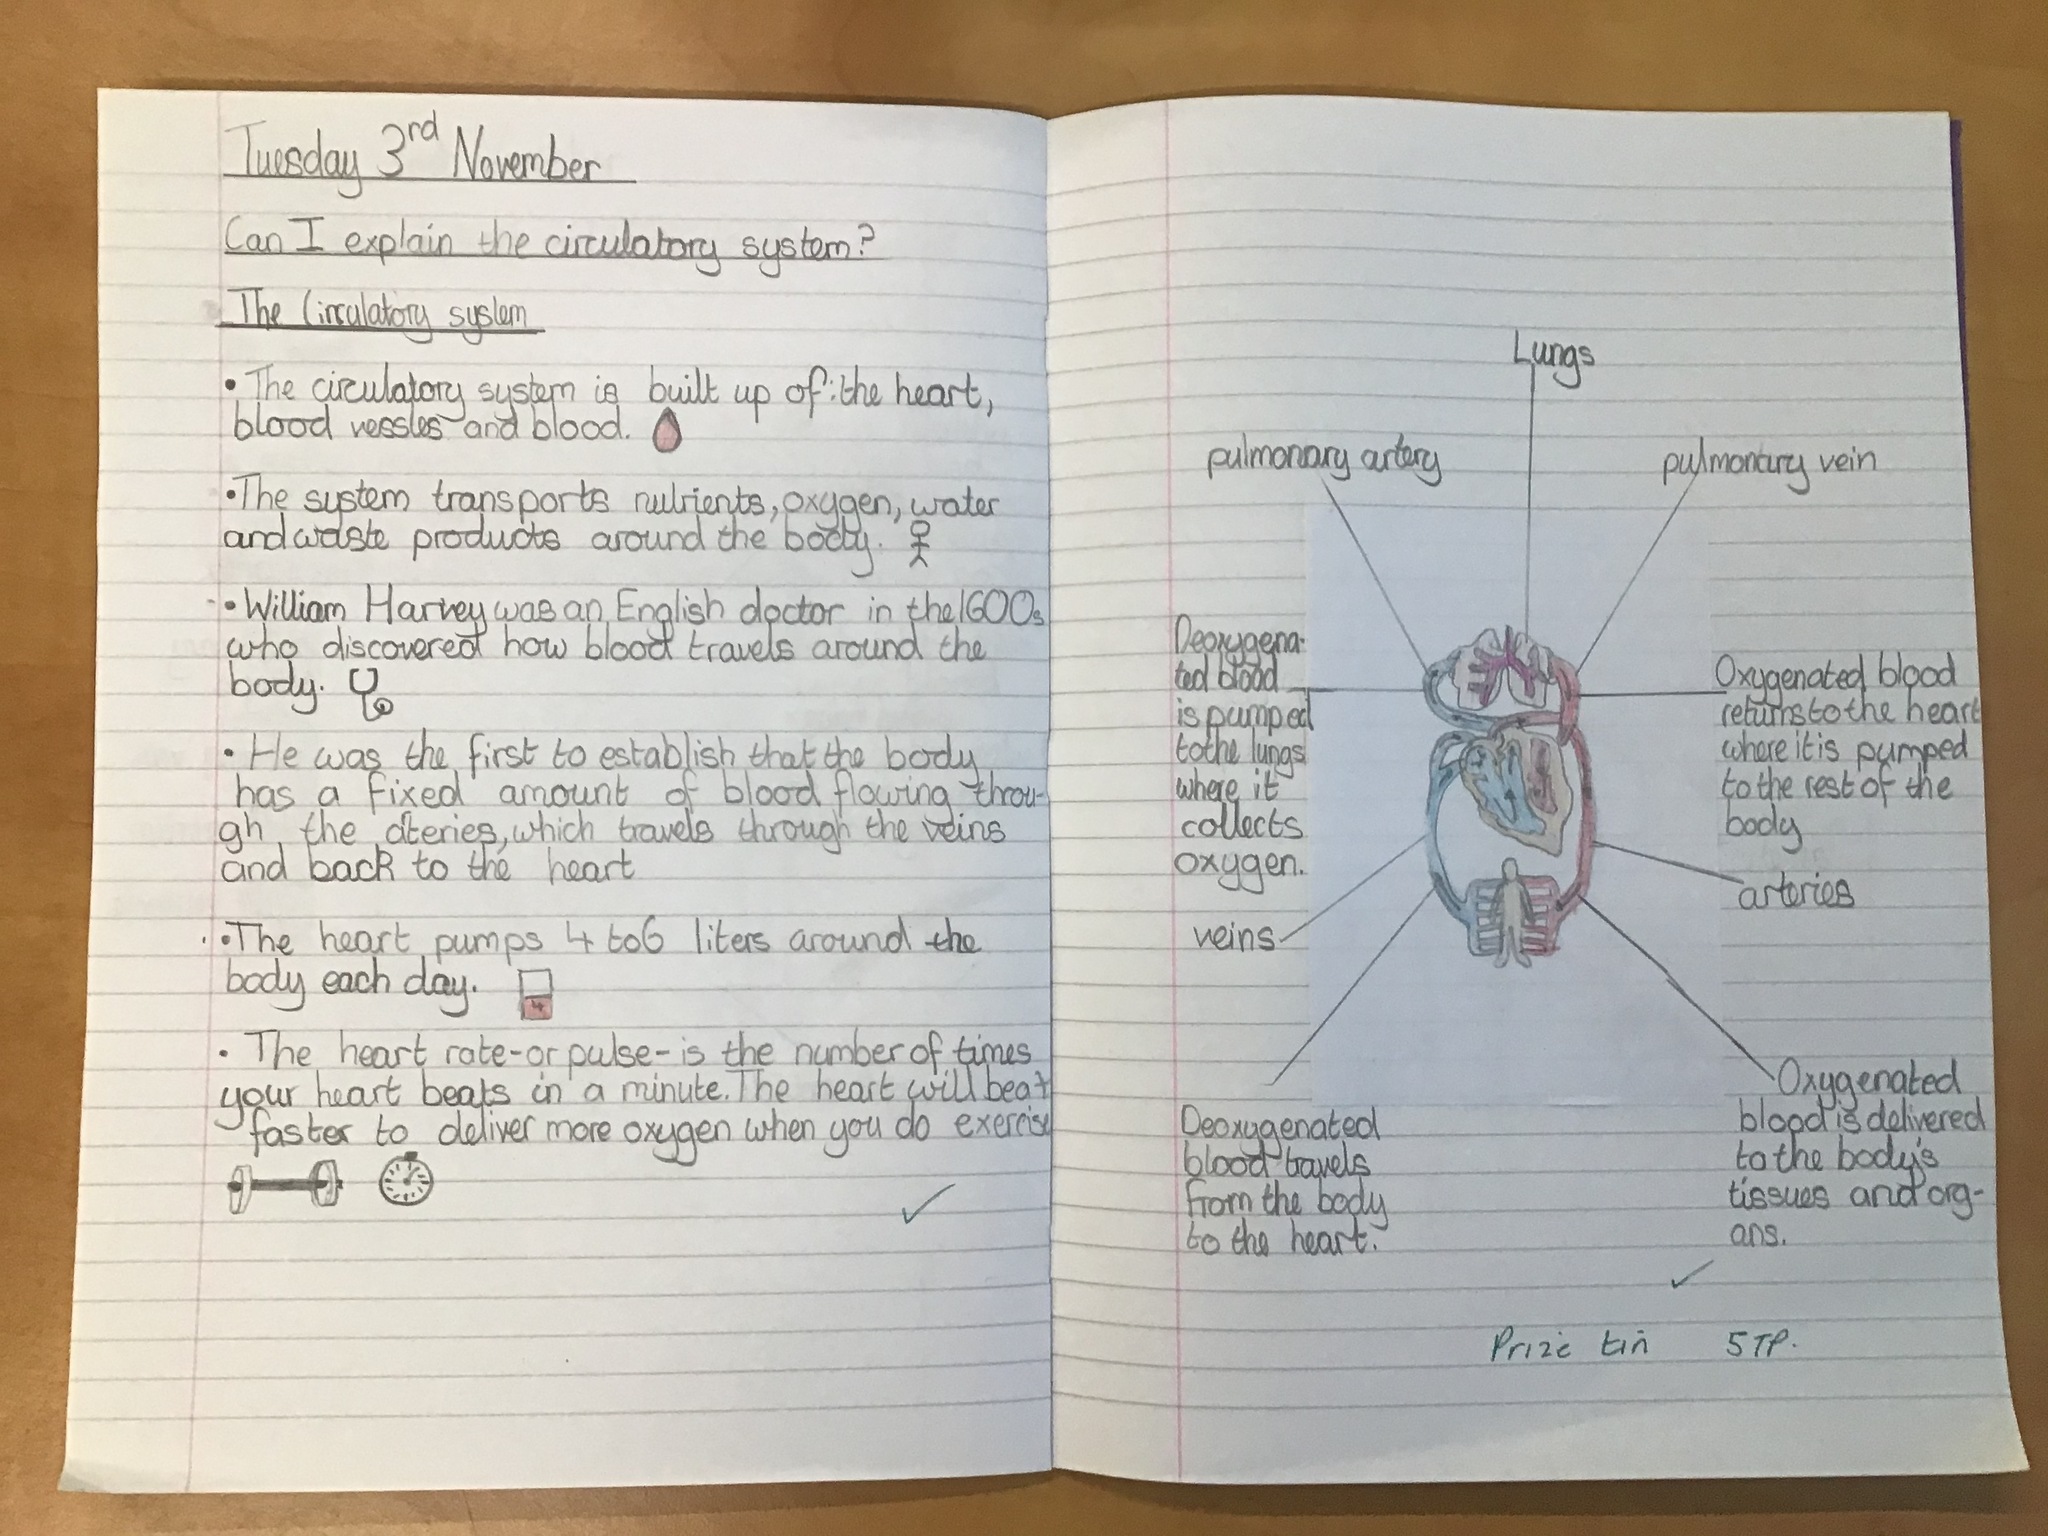 Tuesday 3rd November
Can I explain the circulatory system?
The Circulatory system
• The circulatory system is built up of: the heart,
blood vessles and blood.
• The system transports nutrients, oxygen, water
and waste products around the body.
• William Harvey was an English doctor in the 1600s
who discovered how blood travels around the
body.
• He was the first to establish that the body
has a fixed amount of blood flowing throu-
gh the ateries, which travels through the veins
and back to the heart
• The heart pumps 4 to 6 liters around the
body each day.
4
• The heart rate-or pulse-is the number of times
your heart beats in a minute. The heart will beat
faster to deliver more oxygen when you do exercise
Lungs
pulmonary artery
pulmonary vein
Deoxygena-
ted blood
is pumped
to the lungs
where it
collects
oxygen.
Oxygenated blood
returns to the heart
where it is pumped
to the rest of the
body
arteries
veins
Deoxygenated
blood travels
from the body
to the heart.
Oxygenated
blood is delivered
to the body's
tissues and org-
ans.
Prize tin 5 TP.